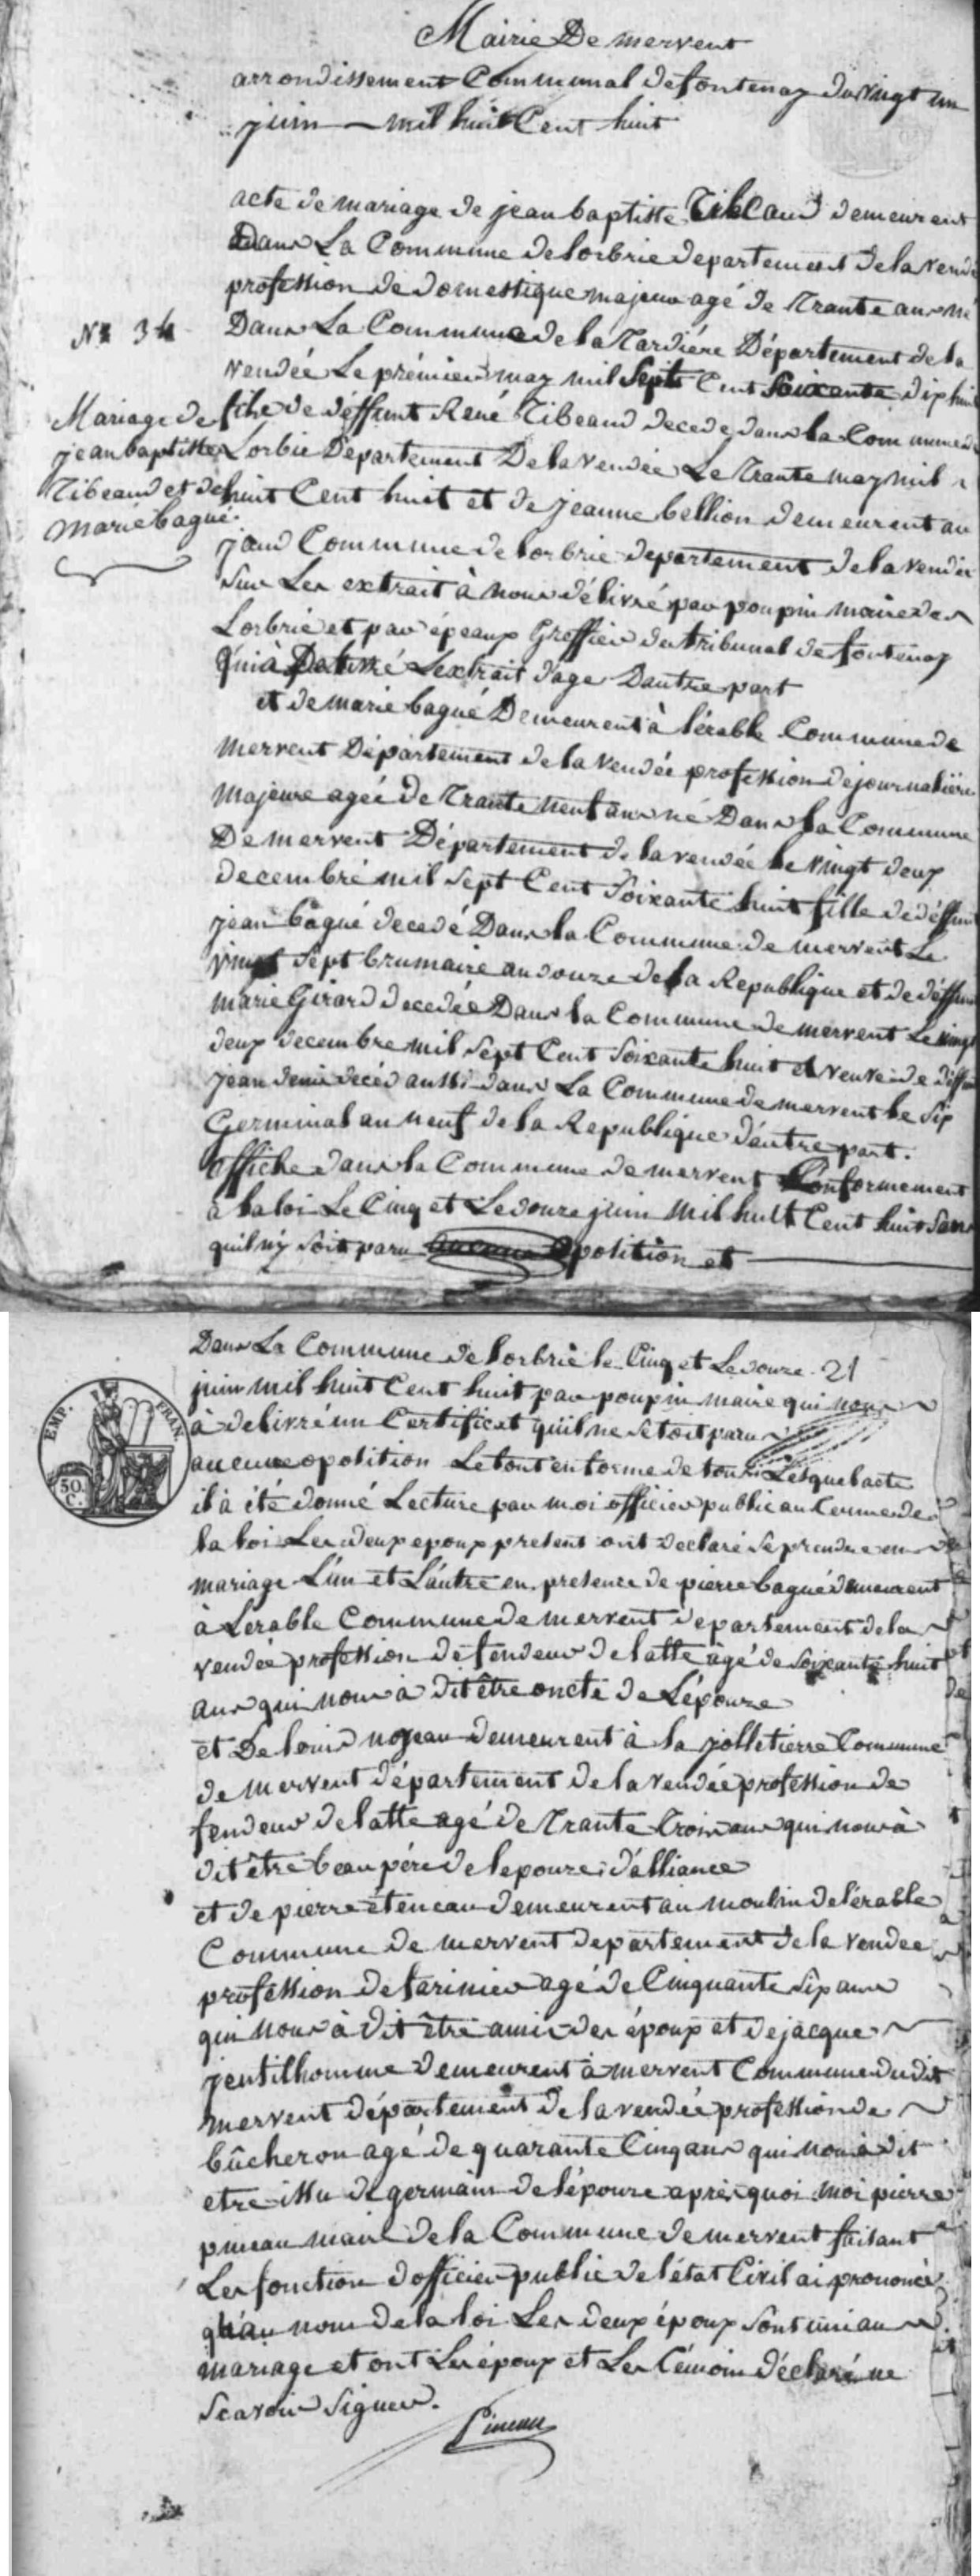 Mairie De mervent
arrondissement Communal de fontenay du vingt un
juin mil huit Cent huit
acte de mariage de jean baptiste demeurent
Dans La Commune de lorbrie departement de la vendé
profession de domestique majeur agé de Trante ans né
Dans La Commune de la Tardiére Département de la
vendée Le prémier may mil Sept Cent Soixante dix huit
N° 34
Mariage de
jean baptiste
Tibeaud et de
marie bagué.
fils de déffunt René Tibeaud decede dans la Commune de
Lorbrie Departement De la vendée Le Trante may mil
huit Cent huit et de jeanne bellion demeurent au
jaud Commune de lorbrie departement de la vendée
Sur Les extrait à nous délivré par poupin maire de
Lorbrie et par épeaux Greffier du tribunal de fontenay
qui à Delivré Lextrait dage Dautre part
et de marie bagué Demeurent à lérable Commune de
mervent Département de la vendée profession de journalière
majeure agée de Trante neuf ans né Dans la Commune
De mervent Département de la vendée le vingt deux
decembre mil Sept Cent Soixante huit fille de déffunt
jean bagué decedé Dans la Commune de mervent Le
vingt Sept brumaire an douze de la Republique et de déffunte
marie Girard decedée Dans la Commune de mervent Le vingt
deux decembre mil Sept Cent Soixante huit et veuve de déffunt
jean denis decéd aussi dans La Commune de mervent le Six
Germinal an neuf de la Republique dautre part.
Affiche dans la Commune de mervent Conformement
à la loi Le Cinq et Le douze juin mil huit Cent huit San
quil ny Soit paru aucune opolition et
Dans La Commune de lorbrie le Cinq et Le douze 21
juin mil huit Cent huit par poupin maire qui nous
à delivré un Certificat quil ne Setoit paru
aucune opolition Le tout en forme de tous Lesquel acte
il à été donné Lecture par moi officier public au terme de
la loi Les deux epoux present ont declaré Se prendre en
mariage L'un et Lautre en presence de pierre bagué demeurent
à Lerable Commune de mervent departement de la
vendée profession de fendeur de latte àgé de Soixante huit
ans qui nous à dit être oncle de Lépouze
et De louis nojeau demeurent à la jolletierre Commune
de mervent département de la vendée profession de
fendeur de latte agé de Trante Trois ans qui nous à
dit être beau pére de lepouze d'alliance
et de pierre éteneau demeurent au moulin de lérable
Commune de mervent departement de la vendee
profession de farinier agé de Cinquante Six ans
qui nous à dit être ami des époux et de jacque
jentilhomme demeurent à mervent Commune du dit
mervent département de la vendée profession de
bûcheron agé de quarante Cinq ans qui nous à dit
etre issu de germain de lépouze après quoi moi pierre
pineau maire de la Commune de mervent faisant
Les fonction dofficier public de létat Civil ai prononcé
qu'au nom de la loi Les deux époux Sont uni au
mariage et ont Les époux et Les témoin déclaré ne
Scavoir Signer.
Pineau
EMP. FRAN.
50 C.